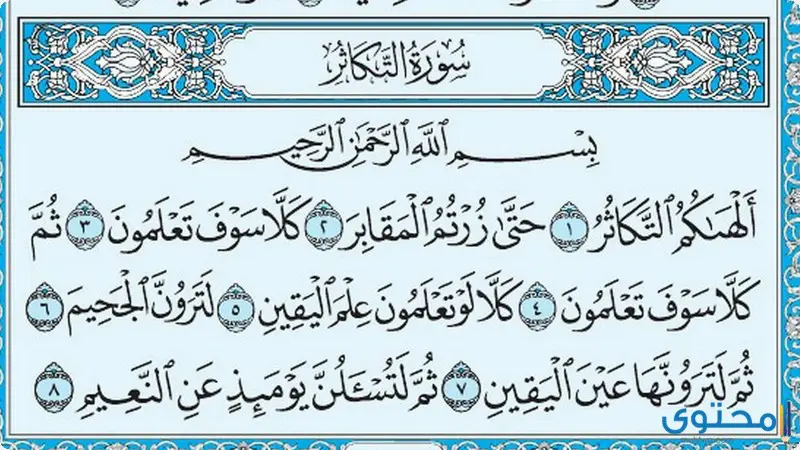 سُورَةُ التَّكَاثُرِ
بِسْمِ اللَّهِ الرَّحْمَٰنِ الرَّحِيمِ
أَلْهَاكُمُ التَّكَاثُرُ ١ حَتَّىٰ زُرْتُمُ الْمَقَابِرَ ٢ كَلَّا سَوْفَ تَعْلَمُونَ ٣ ثُمَّ
كَلَّا سَوْفَ تَعْلَمُونَ ٤ كَلَّا لَوْ تَعْلَمُونَ عِلْمَ الْيَقِينِ ٥ لَتَرَوُنَّ الْجَحِيمَ ٦
ثُمَّ لَتَرَوُنَّهَا عَيْنَ الْيَقِينِ ٧ ثُمَّ لَتُسْأَلُنَّ يَوْمَئِذٍ عَنِ النَّعِيمِ ٨
محتوى